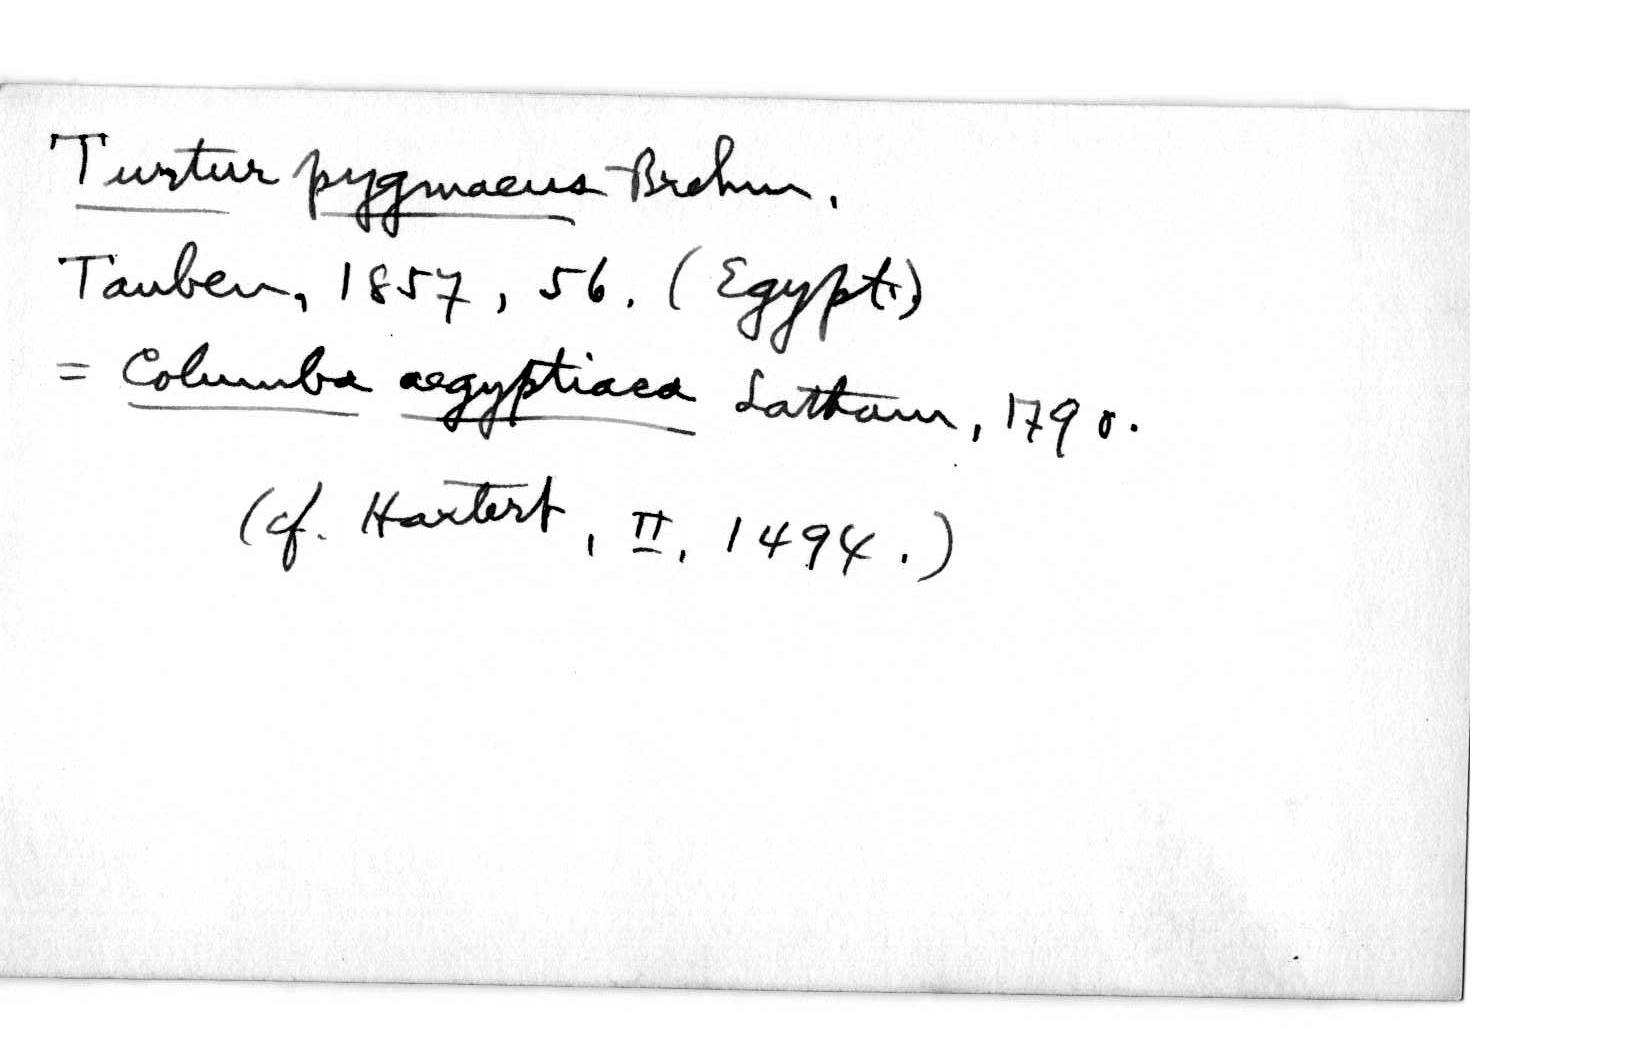 Turtur pygmaeus Brehm.
Tauben, 1857, 56. (Egypt.)
= Columba aegyptiaca Latham, 1790.
(cf. Hartert, II, 1494.)